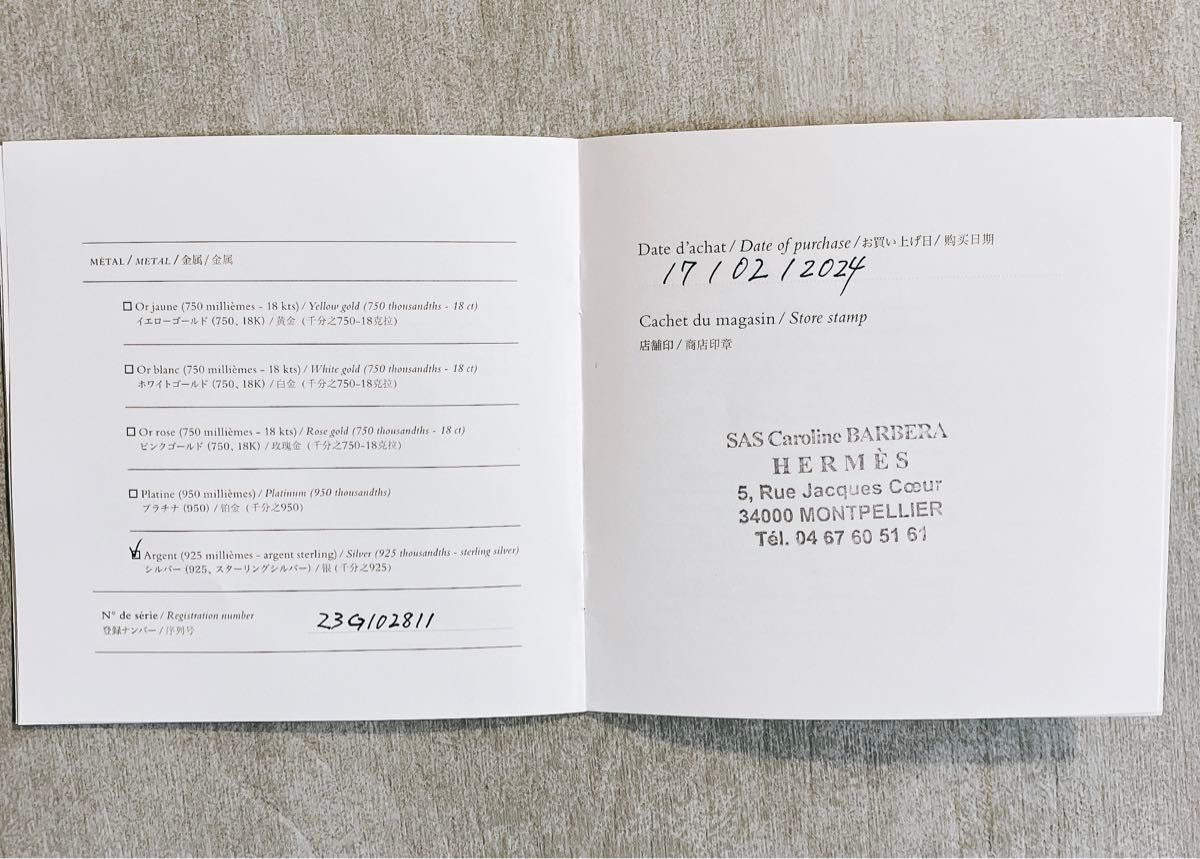 MÉTAL / METAL / 金属 / 金属
Or jaune (750 millièmes - 18 kts) / Yellow gold (750 thousandths - 18 ct)
イエローゴールド (750、18K) / 黄金 (千分之750-18克拉)
Or blanc (750 millièmes - 18 kts) / White gold (750 thousandths - 18 ct)
ホワイトゴールド (750、18K) / 白金 (千分之750-18克拉)
Or rose (750 millièmes - 18 kts) / Rose gold (750 thousandths - 18 ct)
ピンクゴールド (750、18K) / 玫瑰金 (千分之750-18克拉)
Platine (950 millièmes) / Platinum (950 thousandths)
プラチナ (950) / 铂金 (千分之950)
Argent (925 millièmes - argent sterling) / Silver (925 thousandths - sterling silver)
シルバー (925、スターリングシルバー) / 银 (千分之925)
N° de série / Registration number 23G102811
登録ナンバー / 序列号
Date d'achat / Date of purchase / お買い上げ日 / 购买日期
17 / 02 / 2024
Cachet du magasin / Store stamp
店舗印 / 商店印章
SAS Caroline BARBERA
HERMÈS
5, Rue Jacques Cœur
34000 MONTPELLIER
Tél. 04 67 60 51 61